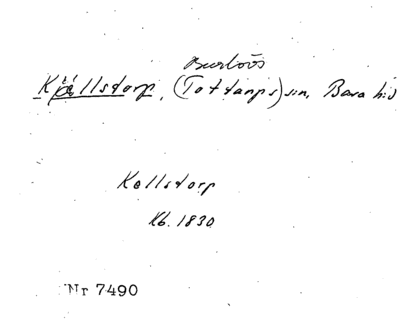 Burlövs
Källstorp, (Tottarps) sn, Bara hd
Kallstorp
Kb. 1830
Nr 7490